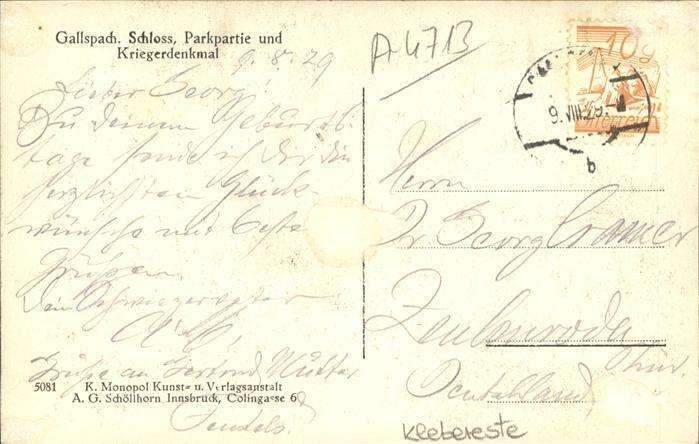 Gallspach. Schloss, Parkpartie und
Kriegerdenkmal
9.8.29
A 4713
10g
Österreich
9.VIII.29
b
Lieber Georg
Zu deinem Geburts-
tage sende ich dir die
herzlichsten Glück-
wünsche und beste
Grüßen
Dein Schwiegervater
Grüße an Mutter
Herrn
Dr Georg Cramer
Zeulenroda
Thür.
Deutschland
5081 K. Monopol Kunst- u. Verlagsanstalt
A. G. Schöllhorn Innsbruck, Colingasse 6
Klebereste